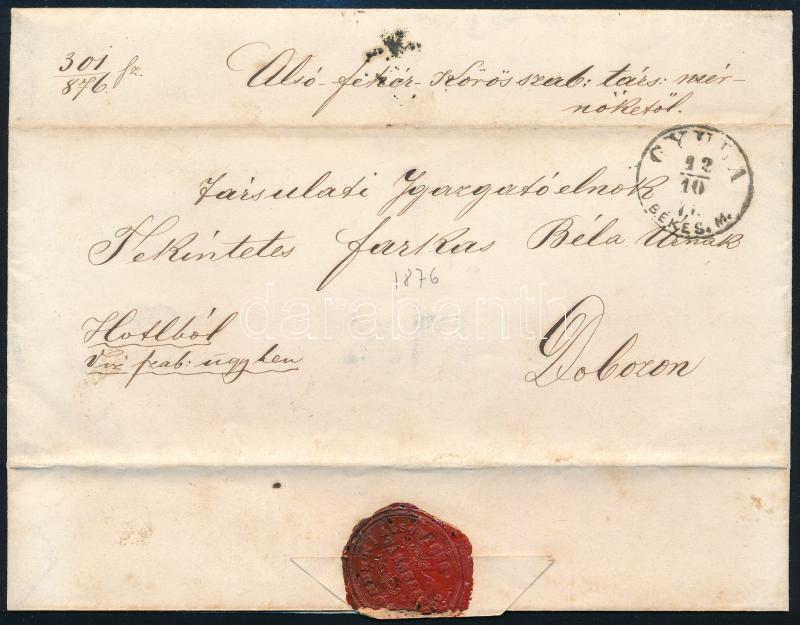 301/876 sz.
Alsó-fehér-Körös szab: társ: mér-
nöketöl.
GYULA
12/10
BÉKÉS. M.
Társulati Igazgató elnök
Tekintetes Farkas Béla Urnak
1876
darabanth
Hotlból
Viz szab: ügyben
Dobozon